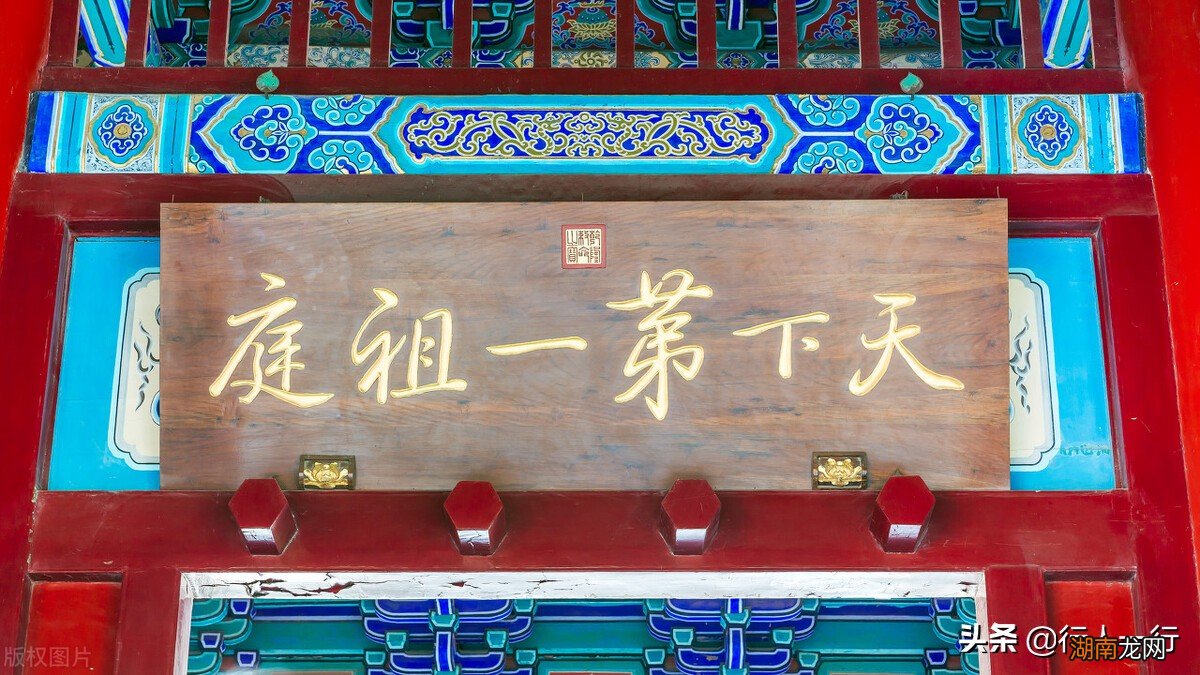 天下第一祖庭
版权图片
头条 @行人一行
湖南龙网